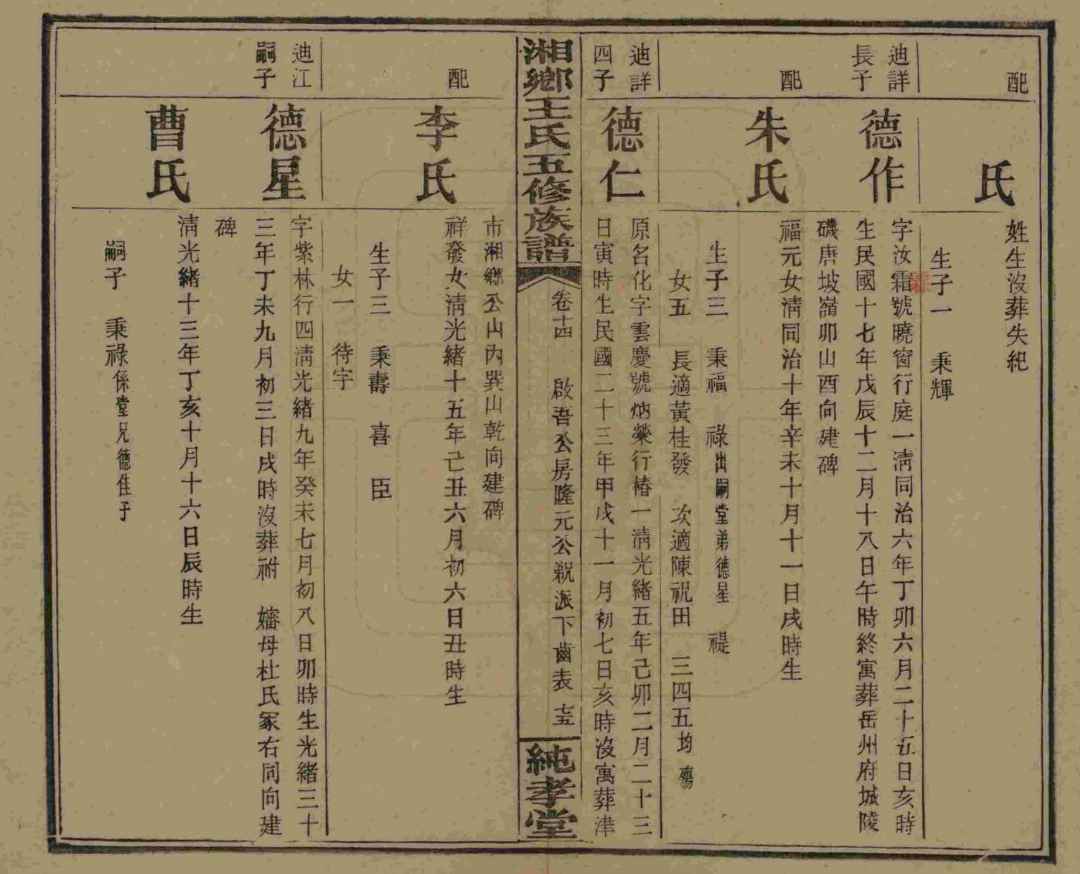 配
氏
姓生沒葬失紀
生子一　秉輝
迪詳長子
德作
字汝霜號曉窗行庭一清同治六年丁卯六月二十五日亥時
生民國十七年戊辰十二月十八日午時終寓葬岳州府城陵
磯唐坡嶺卯山酉向建碑
配
朱氏
福元女清同治十年辛未十月十一日戌時生
生子三　秉福　祿出嗣堂弟德星　禔
女五　長適黃桂發　次適陳祝田　三四五均殤
迪詳四子
德仁
原名化字雲慶號炳榮行椿一清光緒五年己卯二月二十三
日寅時生民國二十三年甲戌十一月初七日亥時沒寓葬津
湘鄉王氏五修族譜
卷十四　啟吾公房隆元公𥘵派下齒表　十五
純孝堂
市湘鄉公山內巽山乾向建碑
配
李氏
祥發女清光緒十五年己丑六月初六日丑時生
生子三　秉壽　喜　臣
女一　待字
迪江嗣子
德星
字紫林行四清光緒九年癸未七月初八日卯時生光緒三十
三年丁未九月初三日戌時沒葬祔　嬸母杜氏冢右同向建
碑
曹氏
清光緒十三年丁亥十月十六日辰時生
嗣子　秉祿係堂兄德作子